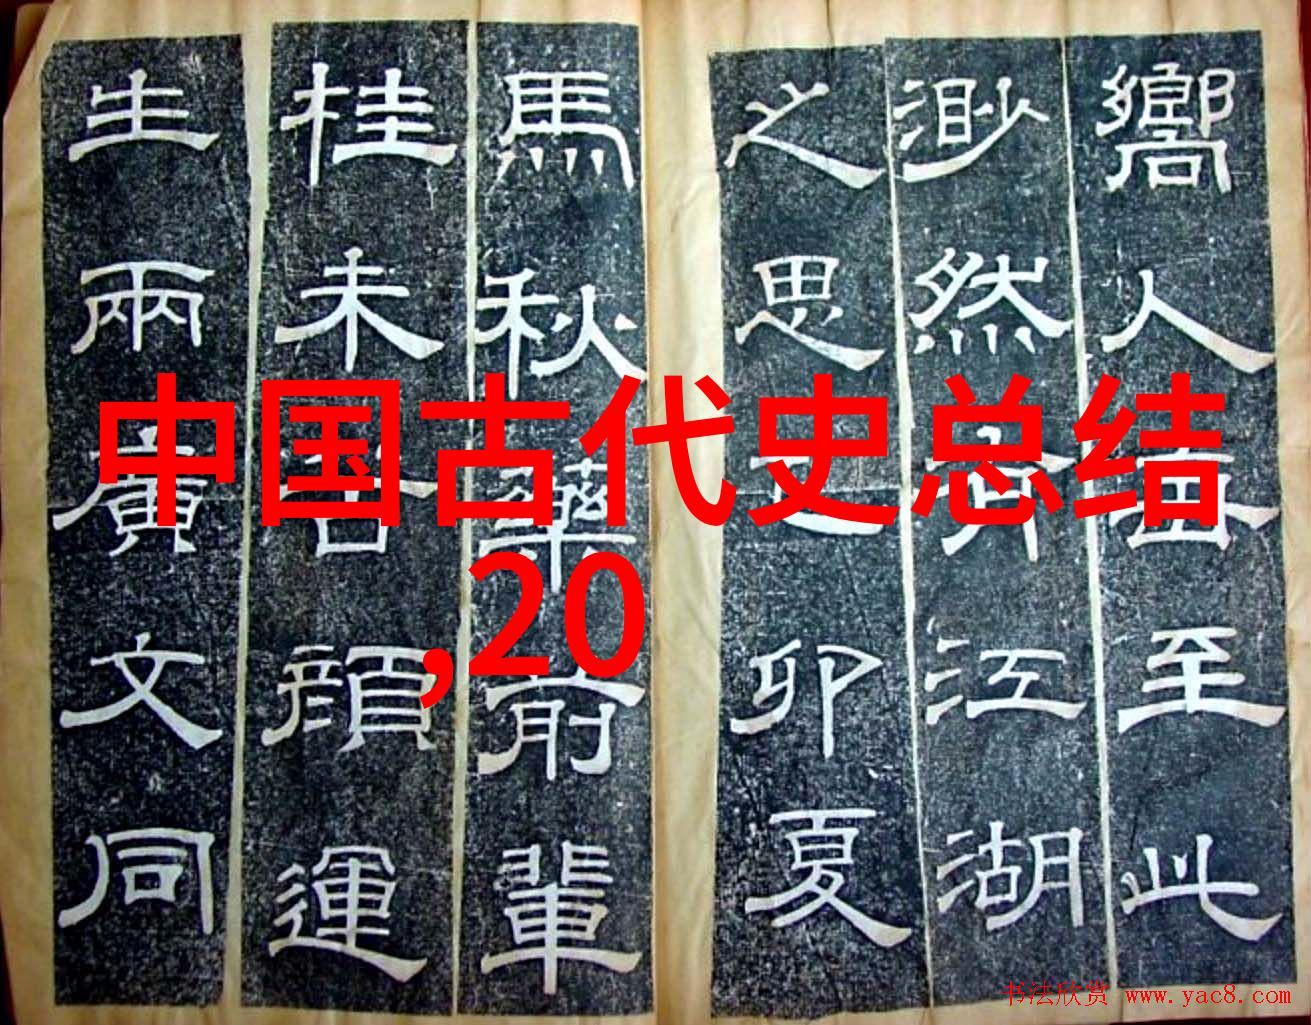 嚮人海至此
渺然有江湖
之思己卯夏
馬秋藥前輩
桂未谷顔運
生兩廣文同
中国古代史总结
,20
书法欣赏 www.yac8.com